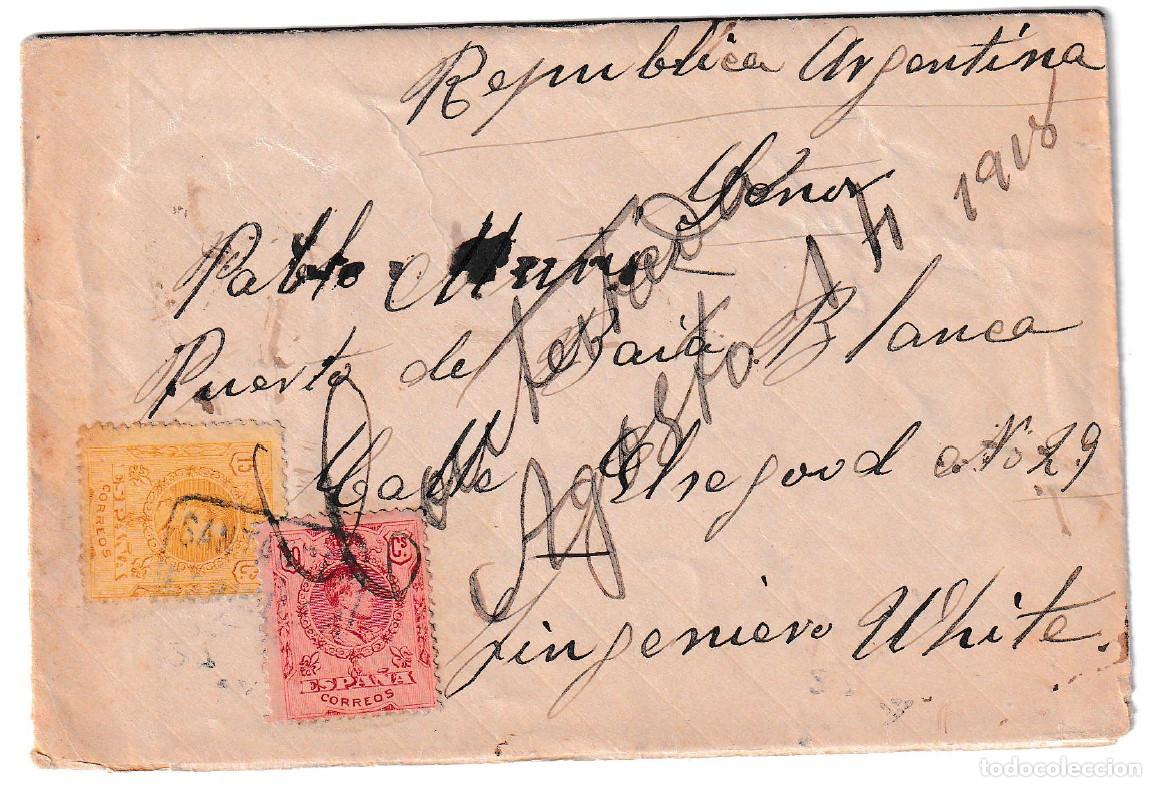 Republica Argentina
Señor
Pablo
Puerto de Baia Blanca
Calle Elsegood No 29
Yingeniero White.
Agosto 14 1918
15 Cs
ESPAÑA
CORREOS
10 Cs
ESPAÑA
CORREOS
todocoleccion.net